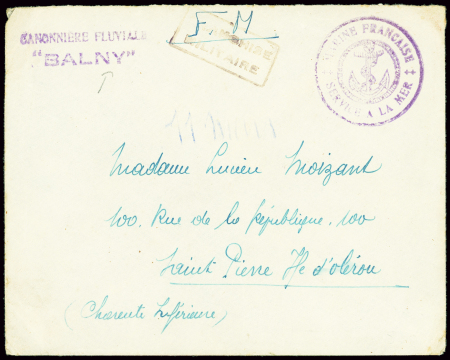 CANONNIÈRE FLUVIALE
"BALNY"
F.M
MARINE FRANÇAISE
SERVICE A LA MER
Madame Lucien Moizant
100. Rue de la République. 100
Saint Pierre Ile d'oléron
(Charente Inférieure)